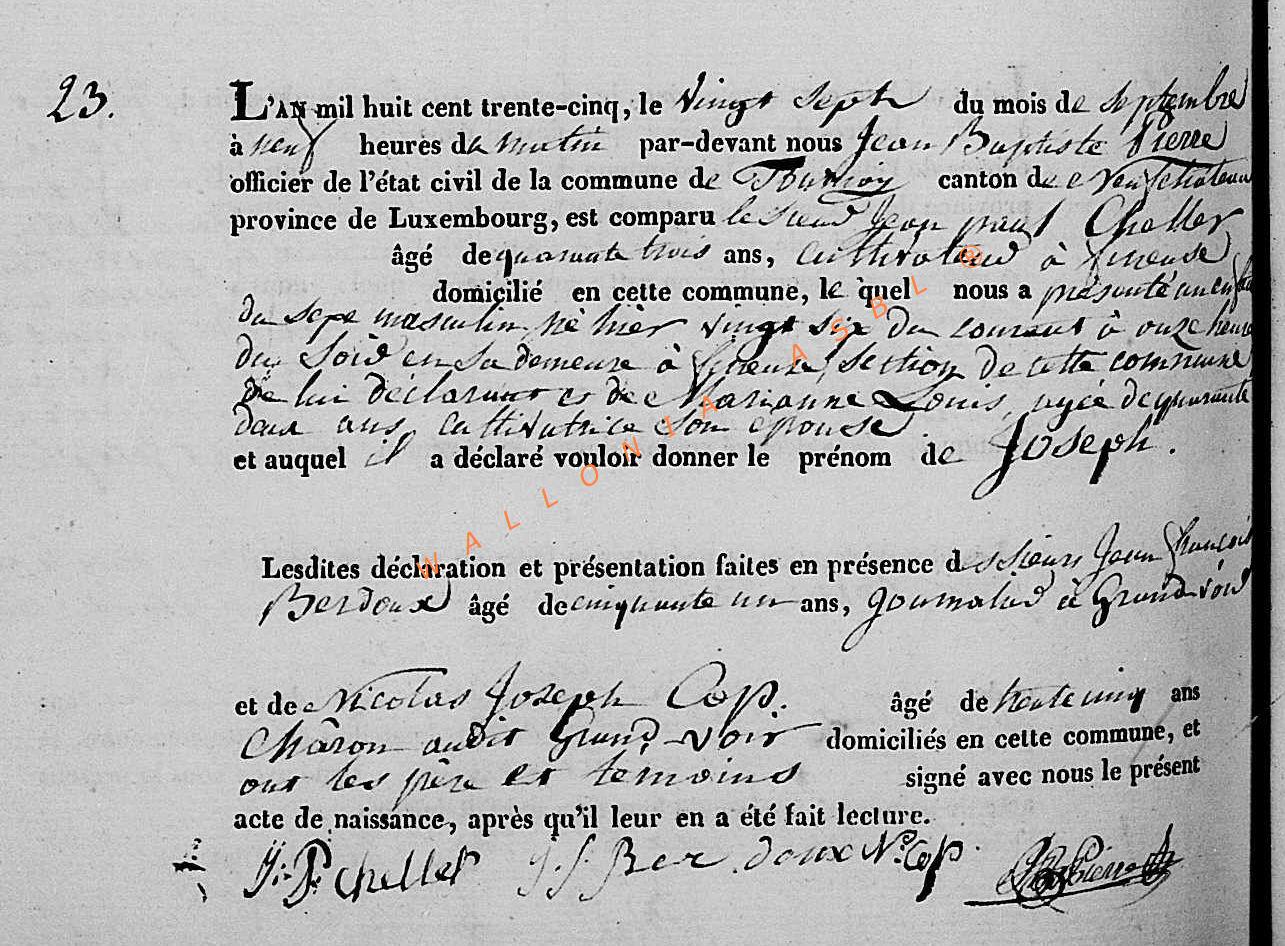 23.
L'AN mil huit cent trente-cinq, le vingt sept du mois de septembre
à neuf heures du matin par-devant nous Jean Baptiste Pierre
officier de l'état civil de la commune de Tournay canton de Neufchateau
province de Luxembourg, est comparu le sieur Jean paul Cheller
âgé de quarante trois ans, cultivateur à
domicilié en cette commune, le quel nous a présenté un enfant
du sexe masculin né hier vingt six du courant à onze heures
du soir en sa demeure à section de cette commune
de lui déclarant et de Marianne Louis, agée de quarante
deux ans, cultivatrice son epouse
et auquel il a déclaré vouloir donner le prénom de Joseph.
Lesdites déclaration et présentation faites en présence des sieurs Jean françois
Berdoux âgé de cinquante un ans, journalier à Grand-voir
et de Nicolas Joseph Cop. âgé de trente cinq ans
Chäron audit Grand-voir domiciliés en cette commune, et
ont les père et temoins signé avec nous le présent
acte de naissance, après qu'il leur en a été fait lecture.
J. P. Cheller J. f. Ber doux N. Cop
WALLONIA ASBL ®